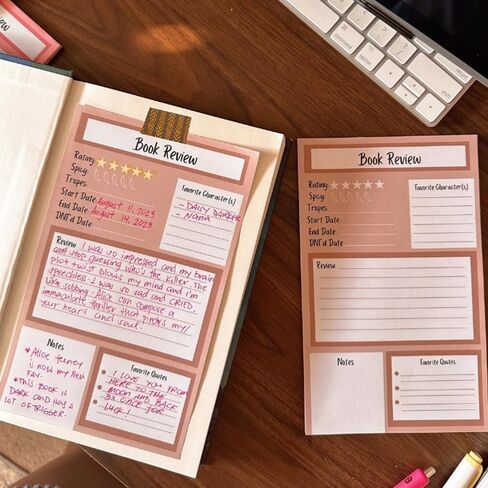 Book Review
Rating
Spicy
Tropes
Start Date August 11, 2023
End Date August 14, 2023
DNF'd Date
Favorite Character(s)
- DAISY DARKER
- NANA
Review I was so impressed and my brain
can't stop guessing who's the killer. The
plot twist blows my mind and I'm
speechless. I was so sad and CRIED.
Like sobbing. Alice can compose a
immaculate thriller that pierces my/
your heart and soul.
Notes
*Alice Feeney
is now my new
FAV.
*THIS BOOK is
DARK and HAS A
LOT OF TRIGGER.
Favorite Quotes
I LOVE YOU FROM
HERE TO THE
MOON AND BACK
3X ONCE FOR
LUCK!
Book Review
Rating
Spicy
Tropes
Start Date
End Date
DNF'd Date
Favorite Character(s)
Review
Notes
Favorite Quotes